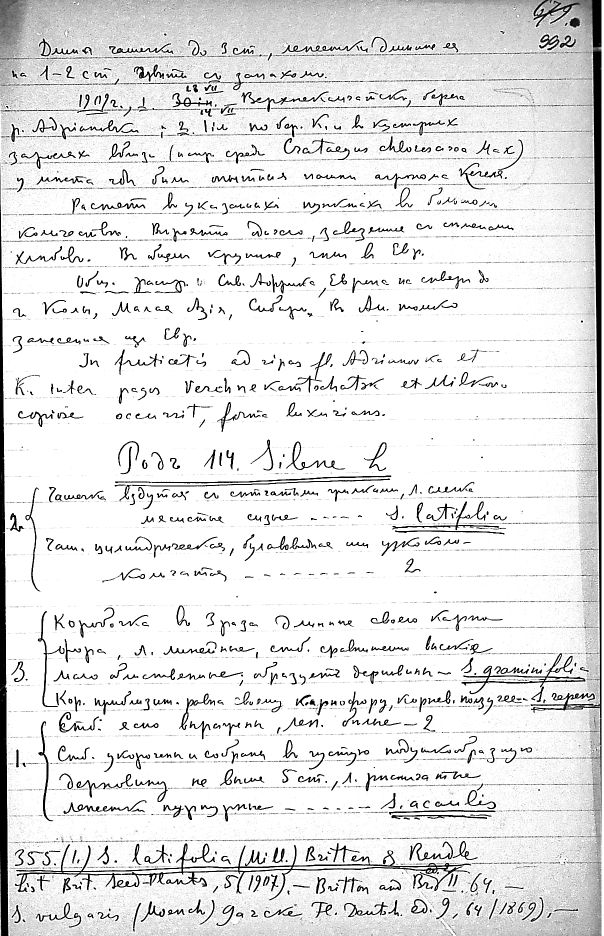 679.
992
Длина чашечки до 3 ст., лепестки длиннее ея
на 1–2 ст, цветы съ запахомъ.
28 VII
1909 г., 1. Верхнекамчатскъ, берега
14 VII
р. Адриановки; 2. по бер. К. и въ кустарныхъ
заросляхъ вблизи (напр. среди Crataegus chlorosarca Max)
у мѣста гдѣ были опытныя пашни агронома Кегеля.
Растетъ въ указанныхъ пунктахъ въ большомъ
количествѣ. Вѣроятно одичало, завезенное съ сѣменами
хлѣбовъ. Въ общемъ крупнѣе, чѣмъ въ Евр.
Общ. распр.: Сѣв. Африка, Европа на сѣверъ до
г. Колы, Малая Азія, Сибирь. Въ Ам. только
занесенное изъ Евр.
In fruticetis ad ripas fl. Adrianovka et
K. inter pagos Verchnekamtschatsk et Milkovo
copiose occurrit, forma luxurians.
Родъ 114. Silene L
2. Чашечка вздутая съ сѣтчатыми жилками, л. слегка
мясистые сизые ----- S. latifolia
Чаш. цилиндрическая, булавовидная или узкоколо-
кольчатая -------- 2
3. Коробочка въ 3 раза длиннѣе своего карпо
фора, л. линейные, стб. сравнительно высокіе
мало облиственные; образуетъ дерновины – S. graminifolia
Кор. приблизит. равна своему карпофору, корнев. ползучее – S. repens
1. Стб. ясно выражены, леп. бѣлые – 2
Стб. укорочены и собраны въ густую подушкообразную
дерновину не выше 5 ст., л. рѣснитчатые,
лепестки пурпурные ------ S. acaulis
355. (1.) S. latifolia (Mill.) Britten & Rendle
List Brit. Seed-Plants, 5 (1907). – Britton and Br. ed. 2 II. 64. –
S. vulgaris (Moench) Garcke Fl. Deutsch. ed. 9, 64 (1869), –